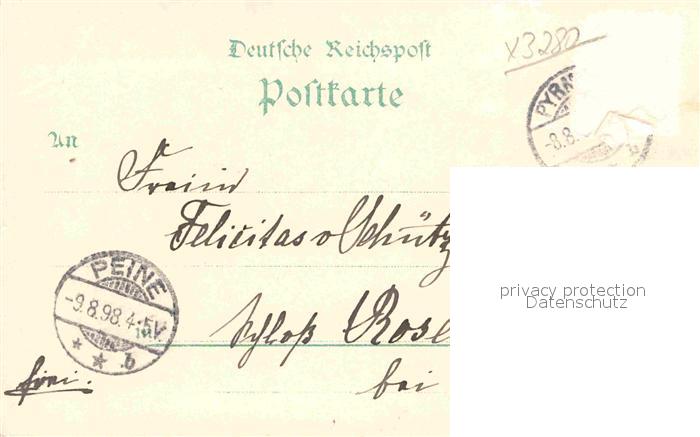 Deutsche Reichspost
Postkarte
x3280
PYRM
-8.8.
An
Freiin
Felicitas v Schütz
PEINE
-9.8.98.4-5N.
* * b
Schloß Rose
bei
frei.
privacy protection
Datenschutz